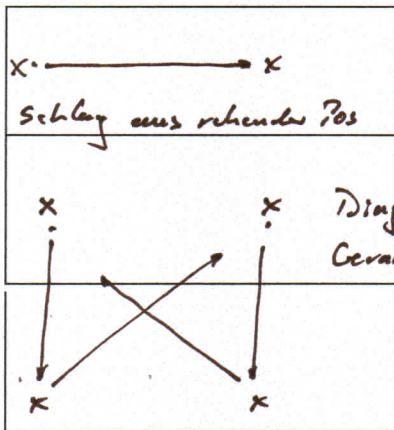 x x
Schlag aus ruhender Pos
x x Diag
Gera
x x